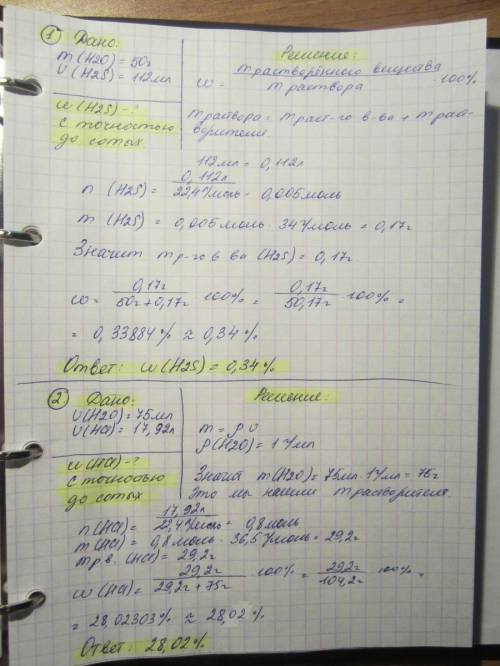 ① Дано:
m(H2O) = 50г
υ(H2S) = 112мл
ω(H2S) - ?
с точностью
до сотых.
Решение:
ω = m растворённого вещества / m раствора · 100%
m раствора = m раст-го в-ва + m раст-
ворителя.
112мл = 0,112л
n(H2S) = 0,112л / 22,4л/моль = 0,005моль
m(H2S) = 0,005моль · 34г/моль = 0,17г
Значит mр-го в ва (H2S) = 0,17г.
ω = 0,17г / 50г + 0,17г · 100% = 0,17г / 50,17г · 100% =
= 0,33884% ≈ 0,34%
Ответ: ω(H2S) = 0,34%
② Дано:
υ(H2O) = 75мл
υ(HCl) = 17,92л
ω(HCl) - ?
с точностью
до сотых
Решение:
m = ρ υ
ρ(H2O) = 1г/мл
Значит m(H2O) = 75мл · 1г/мл = 75г
Это мы нашли m растворителя.
n(HCl) = 17,92л / 22,4л/моль = 0,8моль
m(HCl) = 0,8моль · 36,5г/моль = 29,2г
mр.в. (HCl) = 29,2г
ω(HCl) = 29,2г / 29,2г + 75г · 100% = 29,2г / 104,2г · 100% =
= 28,02303% ≈ 28,02%
Ответ: 28,02%